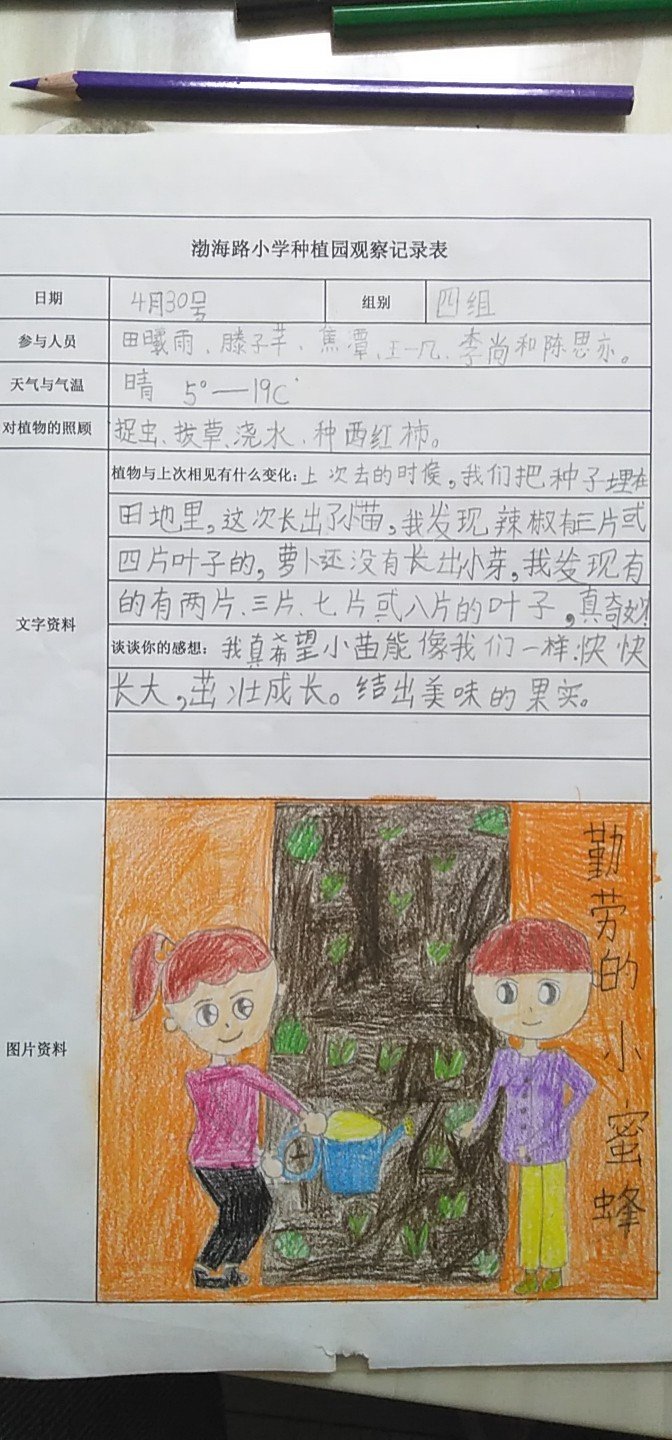 渤海路小学种植园观察记录表
日期 4月30号 组别 四组
参与人员 田曦雨、滕子芊、焦潭、王一凡、李尚和陈思亦。
天气与气温 晴 5°—19C°
对植物的照顾 捉虫、拔草、浇水、种西红柿。
文字资料
植物与上次相见有什么变化：上次去的时候，我们把种子埋在
田地里，这次长出了小苗，我发现辣椒有三片或
四片叶子的，萝卜还没有长出小芽，我发现有
的有两片、三片、七片或八片的叶子，真奇妙
谈谈你的感想：我真希望小苗能像我们一样，快快
长大，茁壮成长。结出美味的果实。
图片资料
勤劳的小蜜蜂